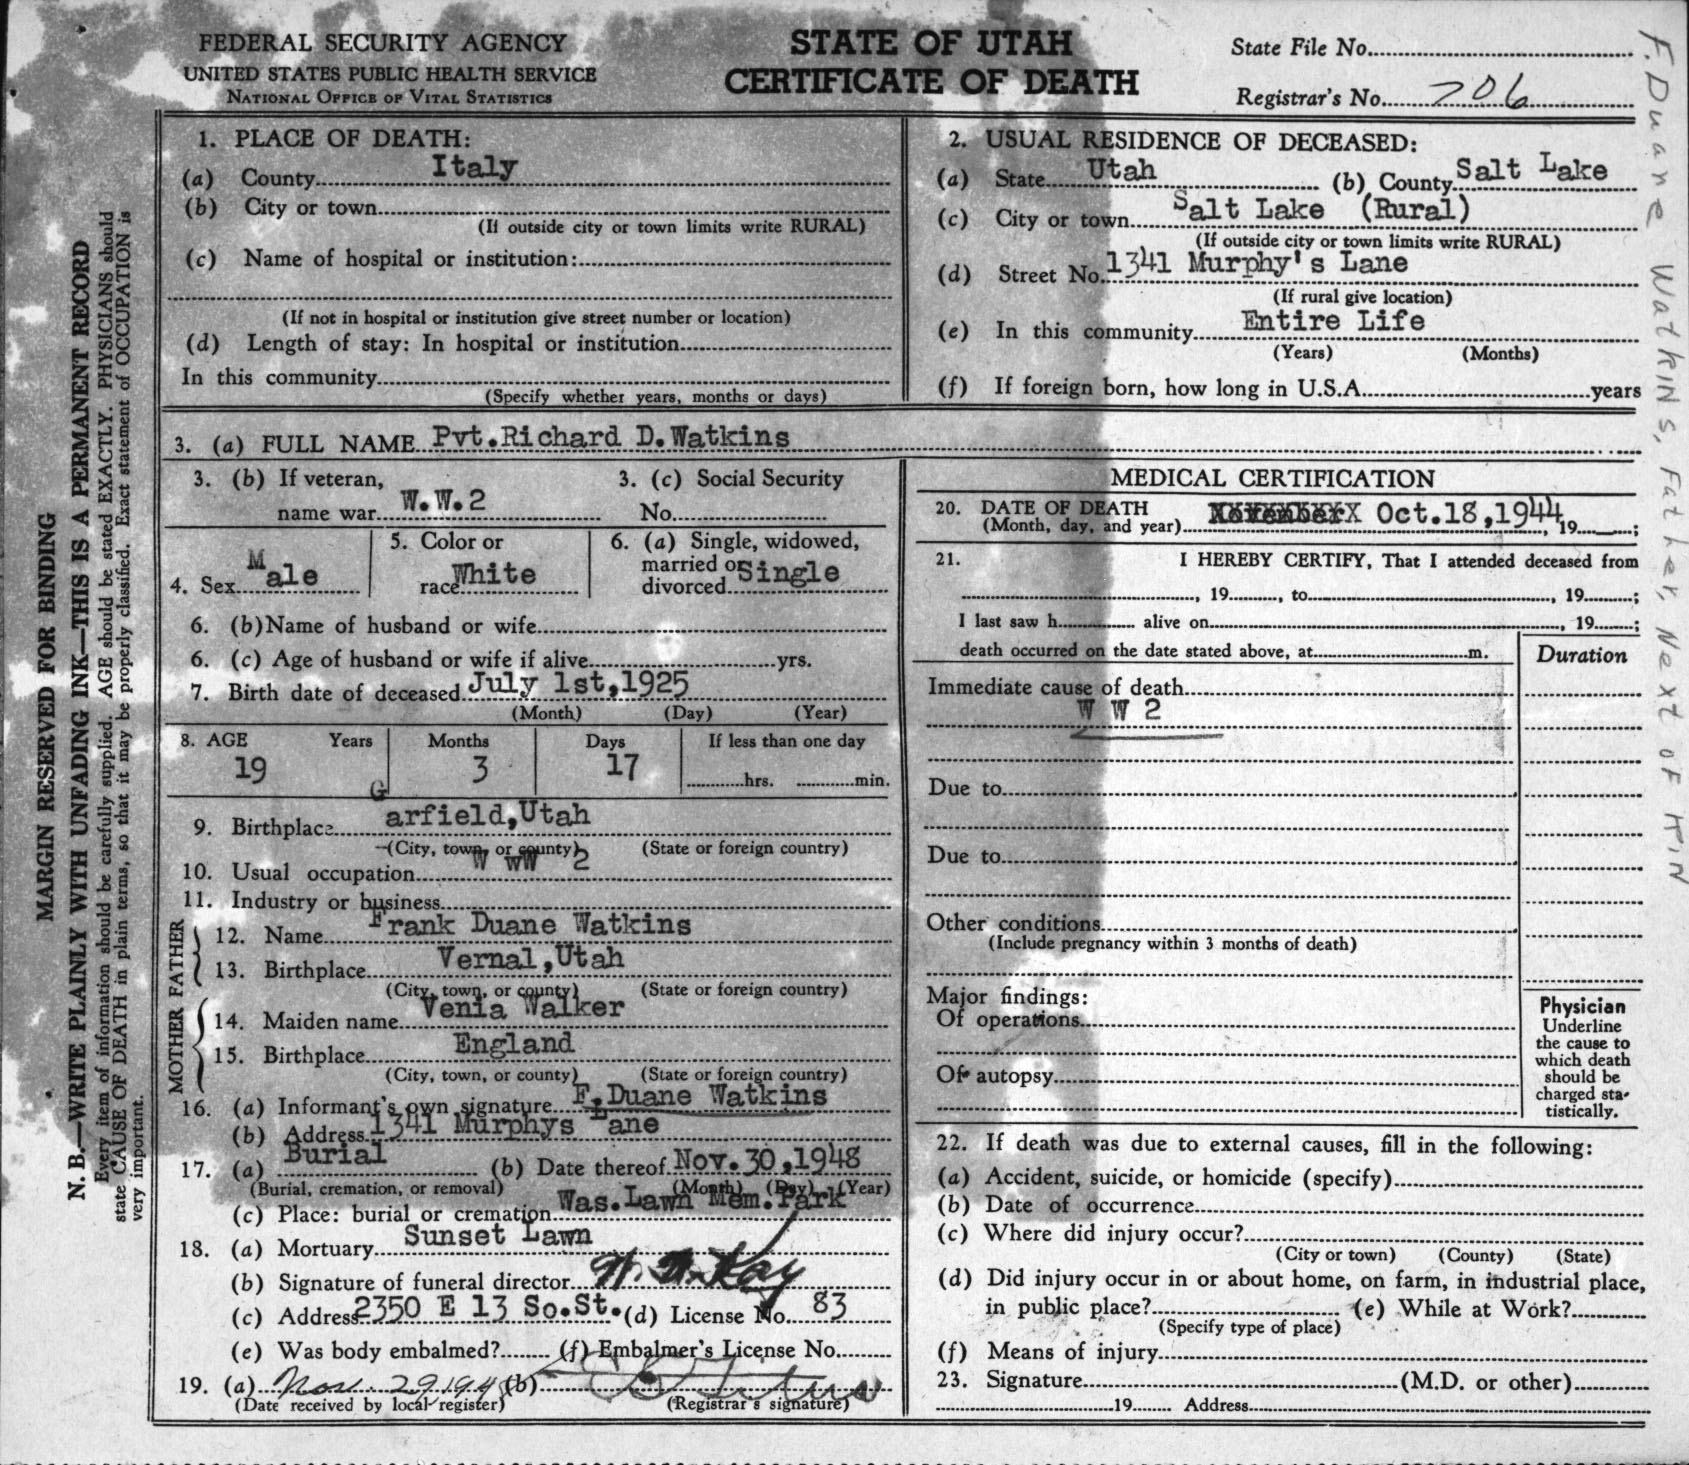 FEDERAL SECURITY AGENCY
UNITED STATES PUBLIC HEALTH SERVICE
NATIONAL OFFICE OF VITAL STATISTICS
STATE OF UTAH
CERTIFICATE OF DEATH
State File No.
Registrar's No. 706
MARGIN RESERVED FOR BINDING
N. B.—WRITE PLAINLY WITH UNFADING INK—THIS IS A PERMANENT RECORD
Every item of information should be carefully supplied. AGE should be stated EXACTLY. PHYSICIANS should
state CAUSE OF DEATH in plain terms, so that it may be properly classified. Exact statement of OCCUPATION is
very important.
1. PLACE OF DEATH:
(a) County Italy
(b) City or town
(If outside city or town limits write RURAL)
(c) Name of hospital or institution:
(If not in hospital or institution give street number or location)
(d) Length of stay: In hospital or institution
In this community
(Specify whether years, months or days)
2. USUAL RESIDENCE OF DECEASED:
(a) State Utah (b) County Salt Lake
(c) City or town Salt Lake (Rural)
(If outside city or town limits write RURAL)
(d) Street No. 1341 Murphy's Lane
(If rural give location)
(e) In this community Entire Life
(Years) (Months)
(f) If foreign born, how long in U.S.A. years
3. (a) FULL NAME Pvt.Richard D.Watkins
3. (b) If veteran,
name war W.W.2
3. (c) Social Security
No.
4. Sex Male
5. Color or
race White
6. (a) Single, widowed,
married or
divorced Single
6. (b)Name of husband or wife
6. (c) Age of husband or wife if alive yrs.
7. Birth date of deceased July 1st,1925
(Month) (Day) (Year)
8. AGE Years Months Days If less than one day
19 3 17 hrs. min.
9. Birthplace Garfield,Utah
(City, town, or county) (State or foreign country)
10. Usual occupation W WW 2
11. Industry or business
FATHER
12. Name Frank Duane Watkins
13. Birthplace Vernal,Utah
(City, town, or county) (State or foreign country)
MOTHER
14. Maiden name Venia Walker
15. Birthplace England
(City, town, or county) (State or foreign country)
16. (a) Informant's own signature F.Duane Watkins
(b) Address 1341 Murphys Lane
17. (a) Burial (b) Date thereof Nov.30,1948
(Burial, cremation, or removal) (Month) (Day) (Year)
(c) Place: burial or cremation Was.Lawn Mem.Park
18. (a) Mortuary Sunset Lawn
(b) Signature of funeral director
(c) Address 2350 E 13 So.St. (d) License No. 83
(e) Was body embalmed? (f) Embalmer's License No.
19. (a) Nov. 29 1948 (b)
(Date received by local register) (Registrar's signature)
MEDICAL CERTIFICATION
20. DATE OF DEATH
(Month, day, and year) Oct.18,1944, 19 ;
21. I HEREBY CERTIFY, That I attended deceased from
, 19 , to , 19 ;
I last saw h alive on , 19 ;
death occurred on the date stated above, at m.
Duration
Immediate cause of death
W W 2
Due to
Due to
Other conditions
(Include pregnancy within 3 months of death)
Major findings:
Of operations
Of autopsy
Physician
Underline
the cause to
which death
should be
charged sta-
tistically.
22. If death was due to external causes, fill in the following:
(a) Accident, suicide, or homicide (specify)
(b) Date of occurrence
(c) Where did injury occur?
(City or town) (County) (State)
(d) Did injury occur in or about home, on farm, in industrial place,
in public place? (e) While at Work?
(Specify type of place)
(f) Means of injury
23. Signature (M.D. or other)
19 Address
F. Duane Watkins, Father, Next of Kin